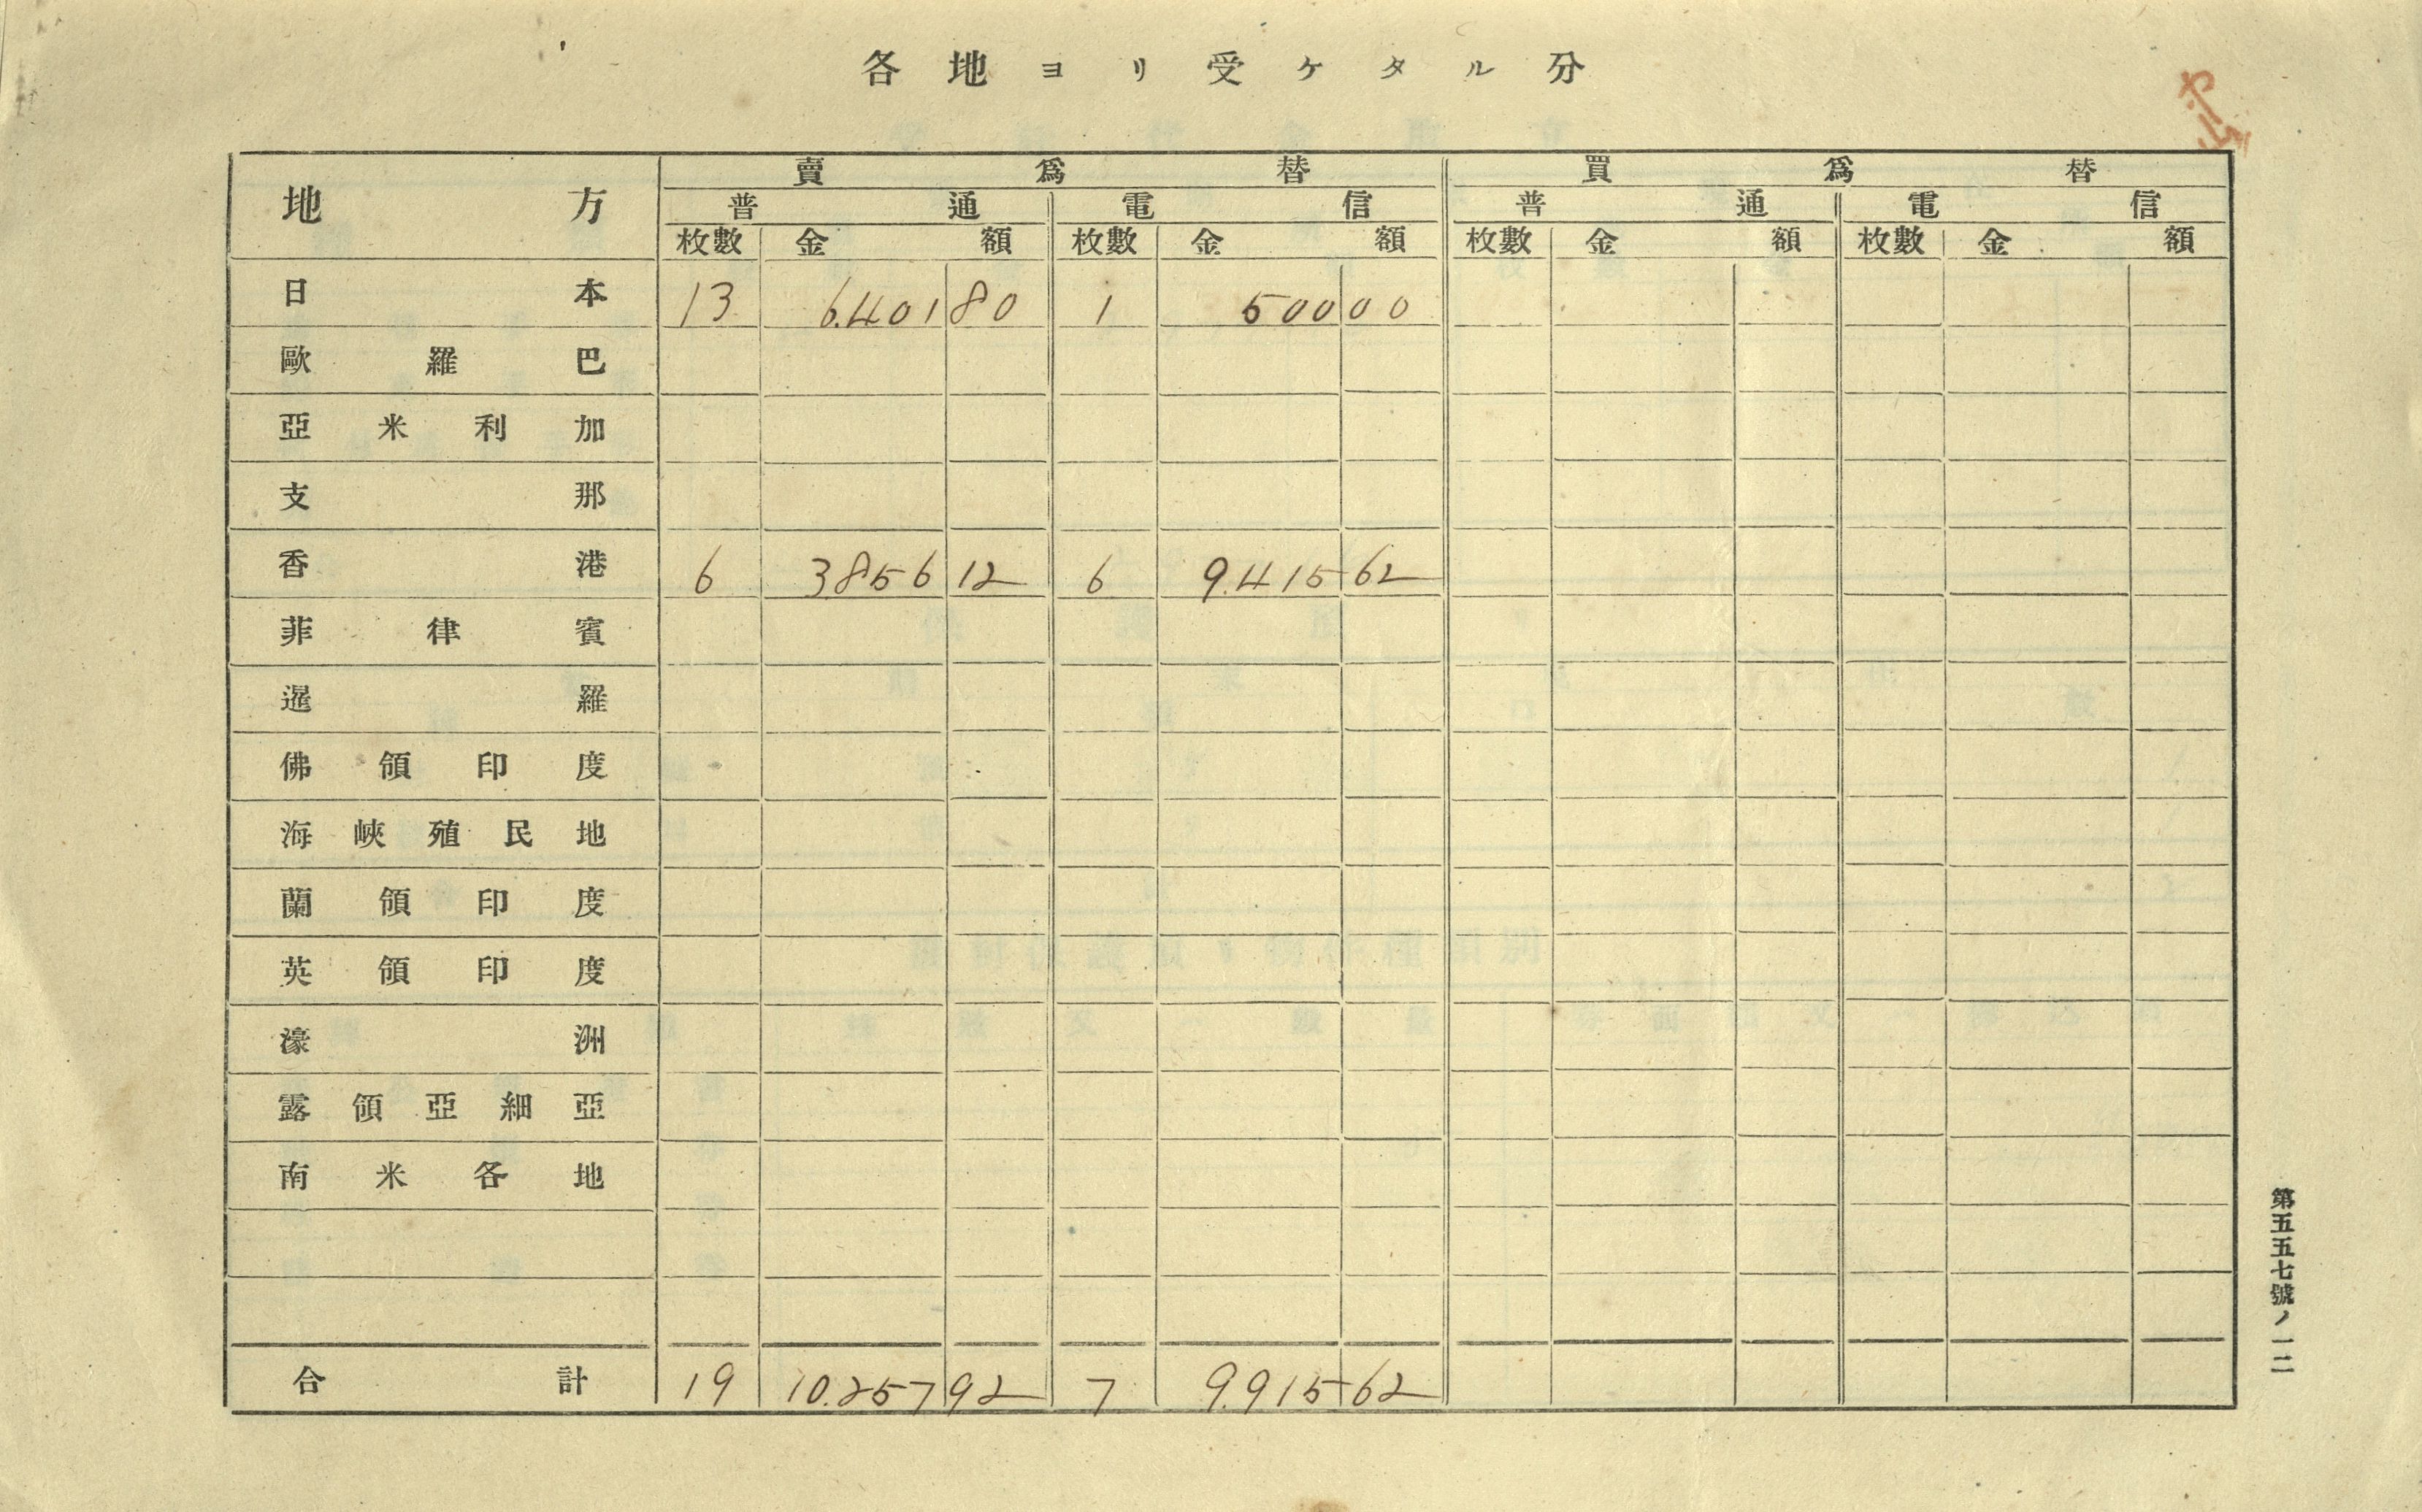 各地ヨリ受ケタル分
地方 賣爲替 買爲替
普通 電信 普通 電信
枚數 金額 枚數 金額 枚數 金額 枚數 金額
日本 13 6.401 80 1 500 00
歐羅巴
亞米利加
支那
香港 6 3.856 12 6 9.415 62
菲律賓
暹羅
佛領印度
海峽殖民地
蘭領印度
英領印度
濠洲
露領亞細亞
南米各地
合計 19 10.257 92 7 9.915 62
第五五七號ノ一二